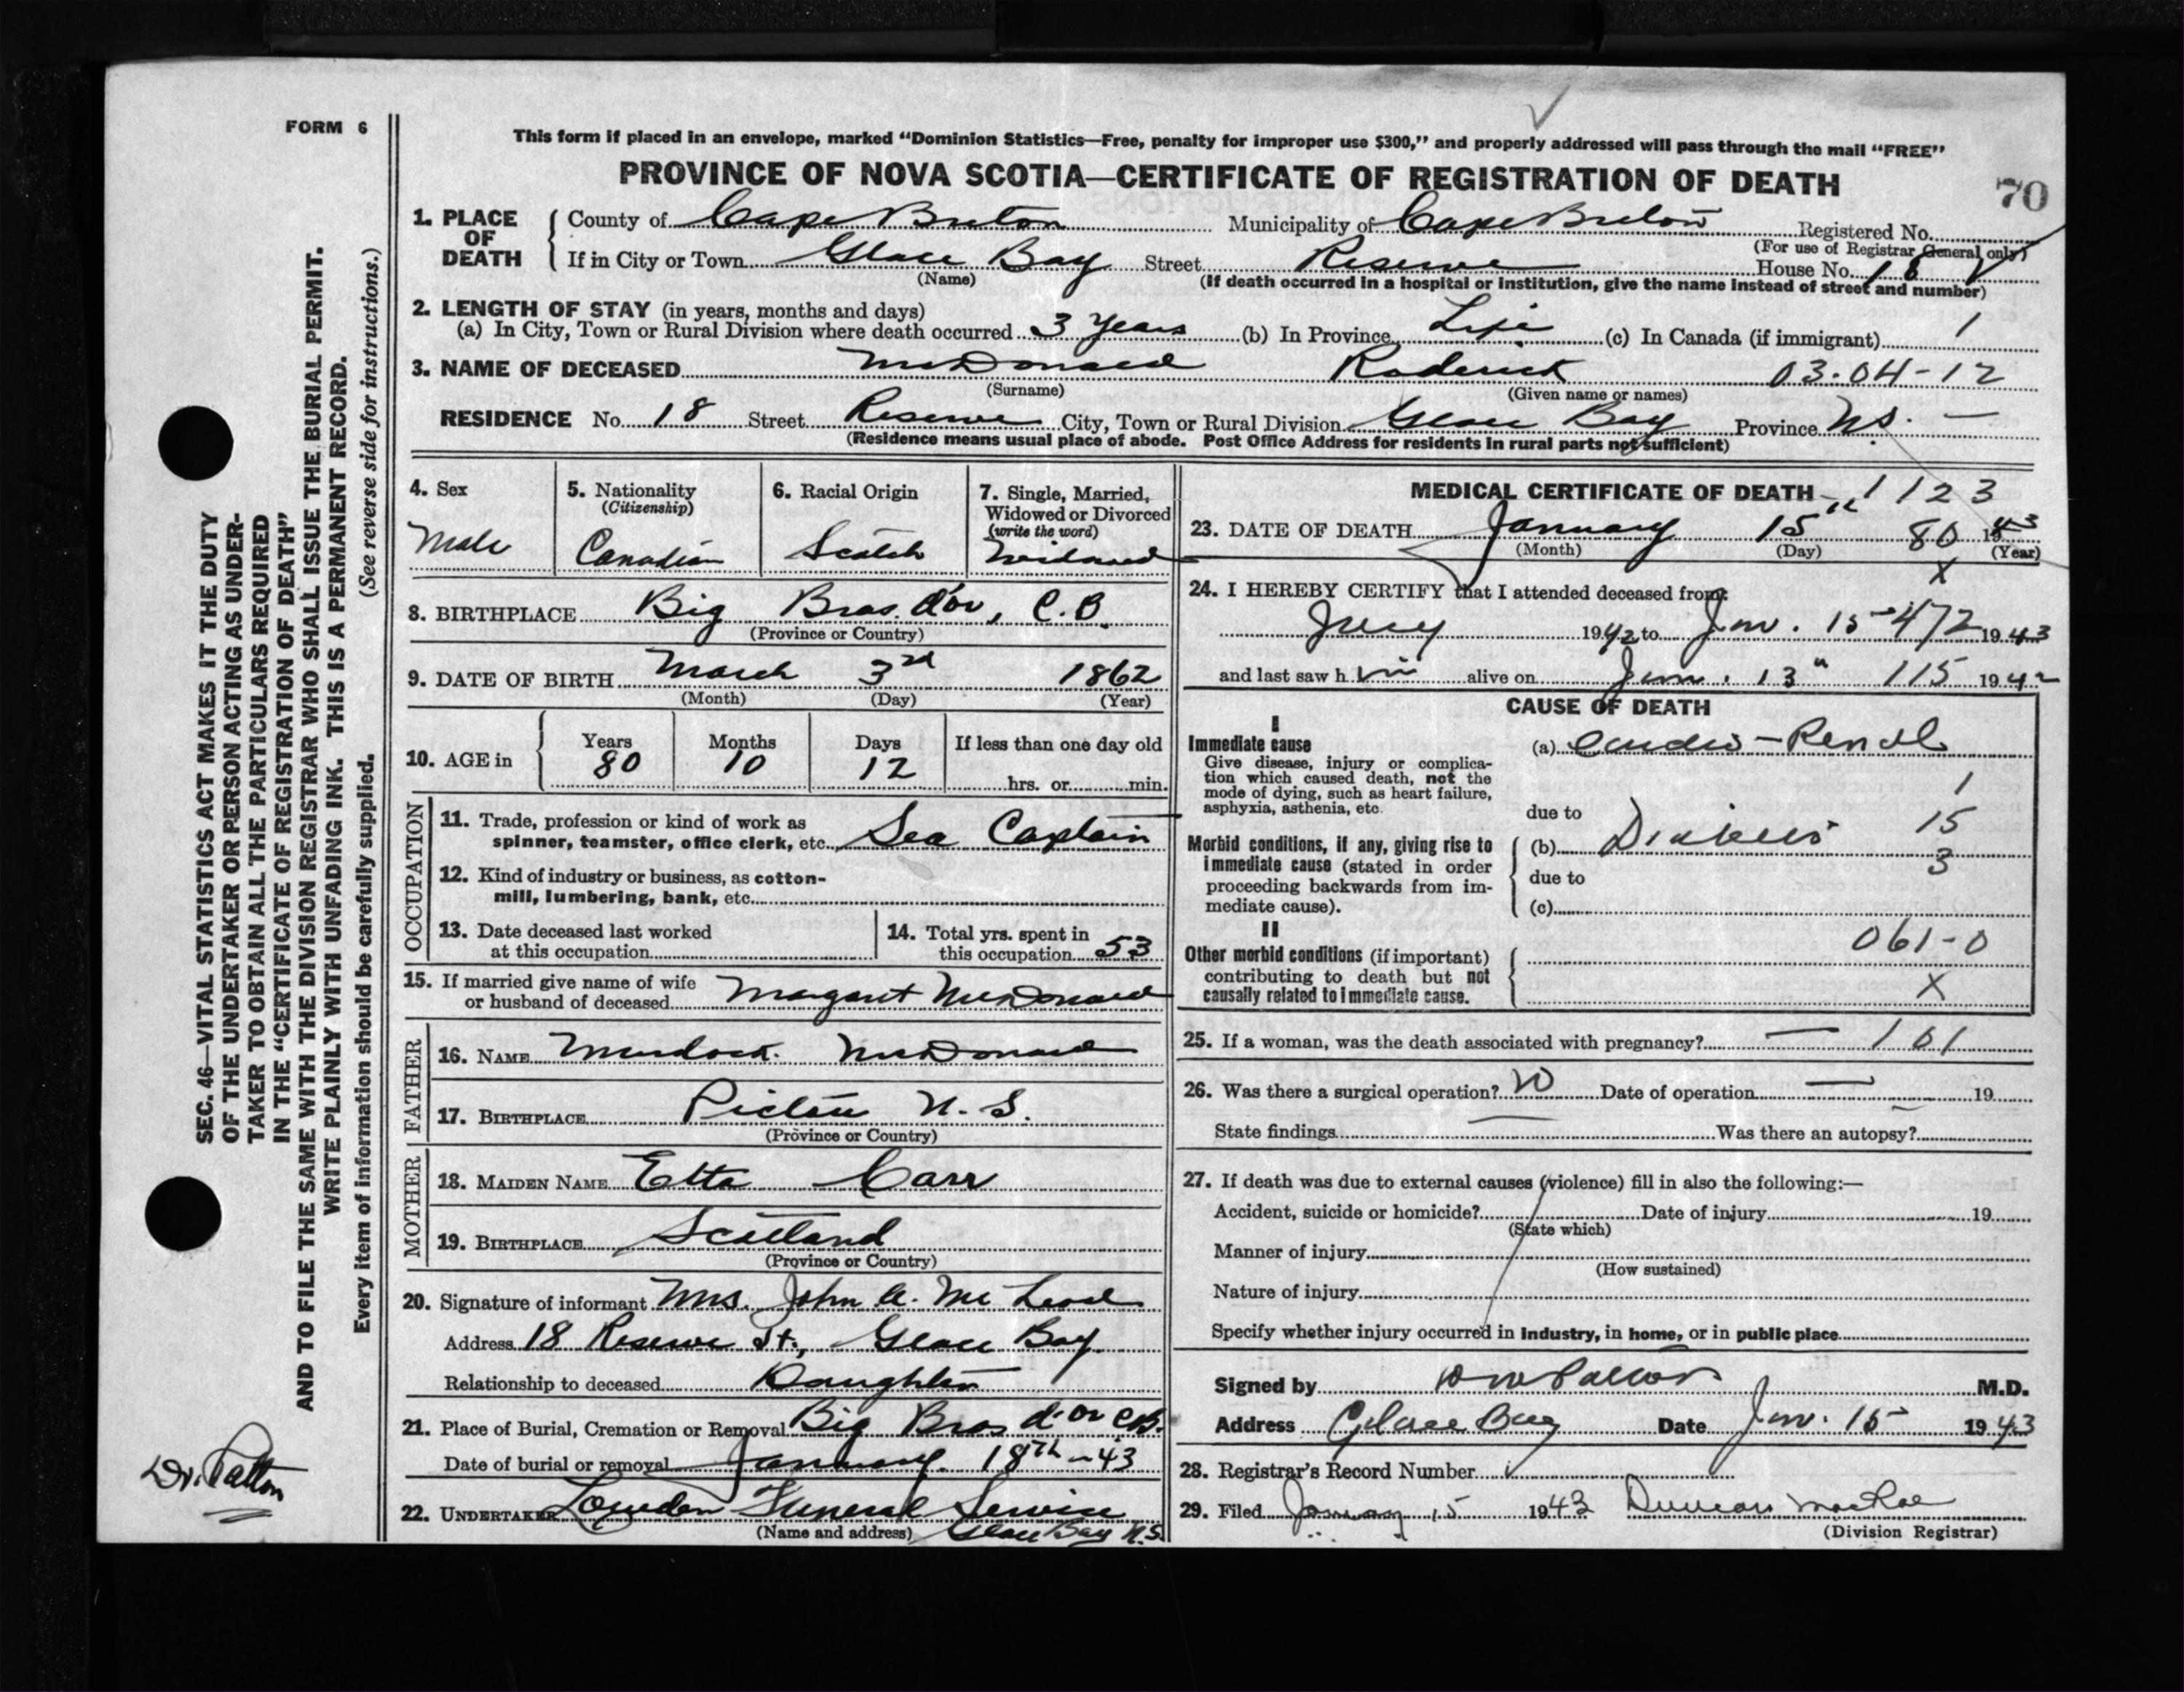 FORM 6
This form if placed in an envelope, marked “Dominion Statistics—Free, penalty for improper use $300,” and properly addressed will pass through the mail “FREE”
PROVINCE OF NOVA SCOTIA—CERTIFICATE OF REGISTRATION OF DEATH
70
1. PLACE OF DEATH
County of Cape Breton Municipality of Cape Breton Registered No.
(For use of Registrar General only)
If in City or Town Glace Bay Street Reserve House No. 18
(Name) (If death occurred in a hospital or institution, give the name instead of street and number)
2. LENGTH OF STAY (in years, months and days)
(a) In City, Town or Rural Division where death occurred 3 Years (b) In Province Life (c) In Canada (if immigrant) 1
3. NAME OF DECEASED McDonald Roderick 03-04-12
(Surname) (Given name or names)
RESIDENCE No. 18 Street Reserve City, Town or Rural Division Glace Bay Province N.S. —
(Residence means usual place of abode. Post Office Address for residents in rural parts not sufficient)
4. Sex
Male
5. Nationality
(Citizenship)
Canadian
6. Racial Origin
Scotch
7. Single, Married,
Widowed or Divorced
(write the word)
Widowed
8. BIRTHPLACE Big Bras d'or, C.B.
(Province or Country)
9. DATE OF BIRTH March 3rd 1862
(Month) (Day) (Year)
10. AGE in
Years Months Days If less than one day old
80 10 12
hrs. or min.
OCCUPATION
11. Trade, profession or kind of work as
spinner, teamster, office clerk, etc. Sea Captain
12. Kind of industry or business, as cotton-
mill, lumbering, bank, etc.
13. Date deceased last worked
at this occupation
14. Total yrs. spent in
this occupation 53
15. If married give name of wife
or husband of deceased Margaret McDonald
FATHER
16. NAME Murdock McDonald
17. BIRTHPLACE Pictou N.S.
(Province or Country)
MOTHER
18. MAIDEN NAME Etta Carr
19. BIRTHPLACE Scotland
(Province or Country)
20. Signature of informant Mrs. John A. McLeod
Address 18 Reserve St., Glace Bay.
Relationship to deceased Daughter
21. Place of Burial, Cremation or Removal Big Bras d'or C.B.
Date of burial or removal January 18th-43
22. UNDERTAKER Funeral Service
(Name and address) Glace Bay N.S.
MEDICAL CERTIFICATE OF DEATH 1123
23. DATE OF DEATH January 15th 80 1943
(Month) (Day) (Year)
X
24. I HEREBY CERTIFY that I attended deceased from:
July 1942 to Jan. 15 472 1943
and last saw h im alive on Jan. 13" 115 1942
CAUSE OF DEATH
I
Immediate cause
Give disease, injury or complica-
tion which caused death, not the
mode of dying, such as heart failure,
asphyxia, asthenia, etc.
(a) Cardio-Renal
1
due to
15
Morbid conditions, if any, giving rise to
immediate cause (stated in order
proceeding backwards from im-
mediate cause).
(b) Diabetes
3
due to
(c)
II
Other morbid conditions (if important)
contributing to death but not
causally related to immediate cause.
061-0
X
25. If a woman, was the death associated with pregnancy? — 101
26. Was there a surgical operation? No Date of operation — 19
State findings — Was there an autopsy?
27. If death was due to external causes (violence) fill in also the following:—
Accident, suicide or homicide? Date of injury 19
(State which)
Manner of injury
(How sustained)
Nature of injury
Specify whether injury occurred in industry, in home, or in public place
Signed by Patton M.D.
Address Glace Bay Date Jan. 15 1943
28. Registrar's Record Number
29. Filed January 15 1943 Duncan MacRae
(Division Registrar)
SEC. 46—VITAL STATISTICS ACT MAKES IT THE DUTY
OF THE UNDERTAKER OR PERSON ACTING AS UNDER-
TAKER TO OBTAIN ALL THE PARTICULARS REQUIRED
IN THE “CERTIFICATE OF REGISTRATION OF DEATH”
AND TO FILE THE SAME WITH THE DIVISION REGISTRAR WHO SHALL ISSUE THE BURIAL PERMIT.
WRITE PLAINLY WITH UNFADING INK. THIS IS A PERMANENT RECORD.
Every item of information should be carefully supplied. (See reverse side for instructions.)
Dr. Patton